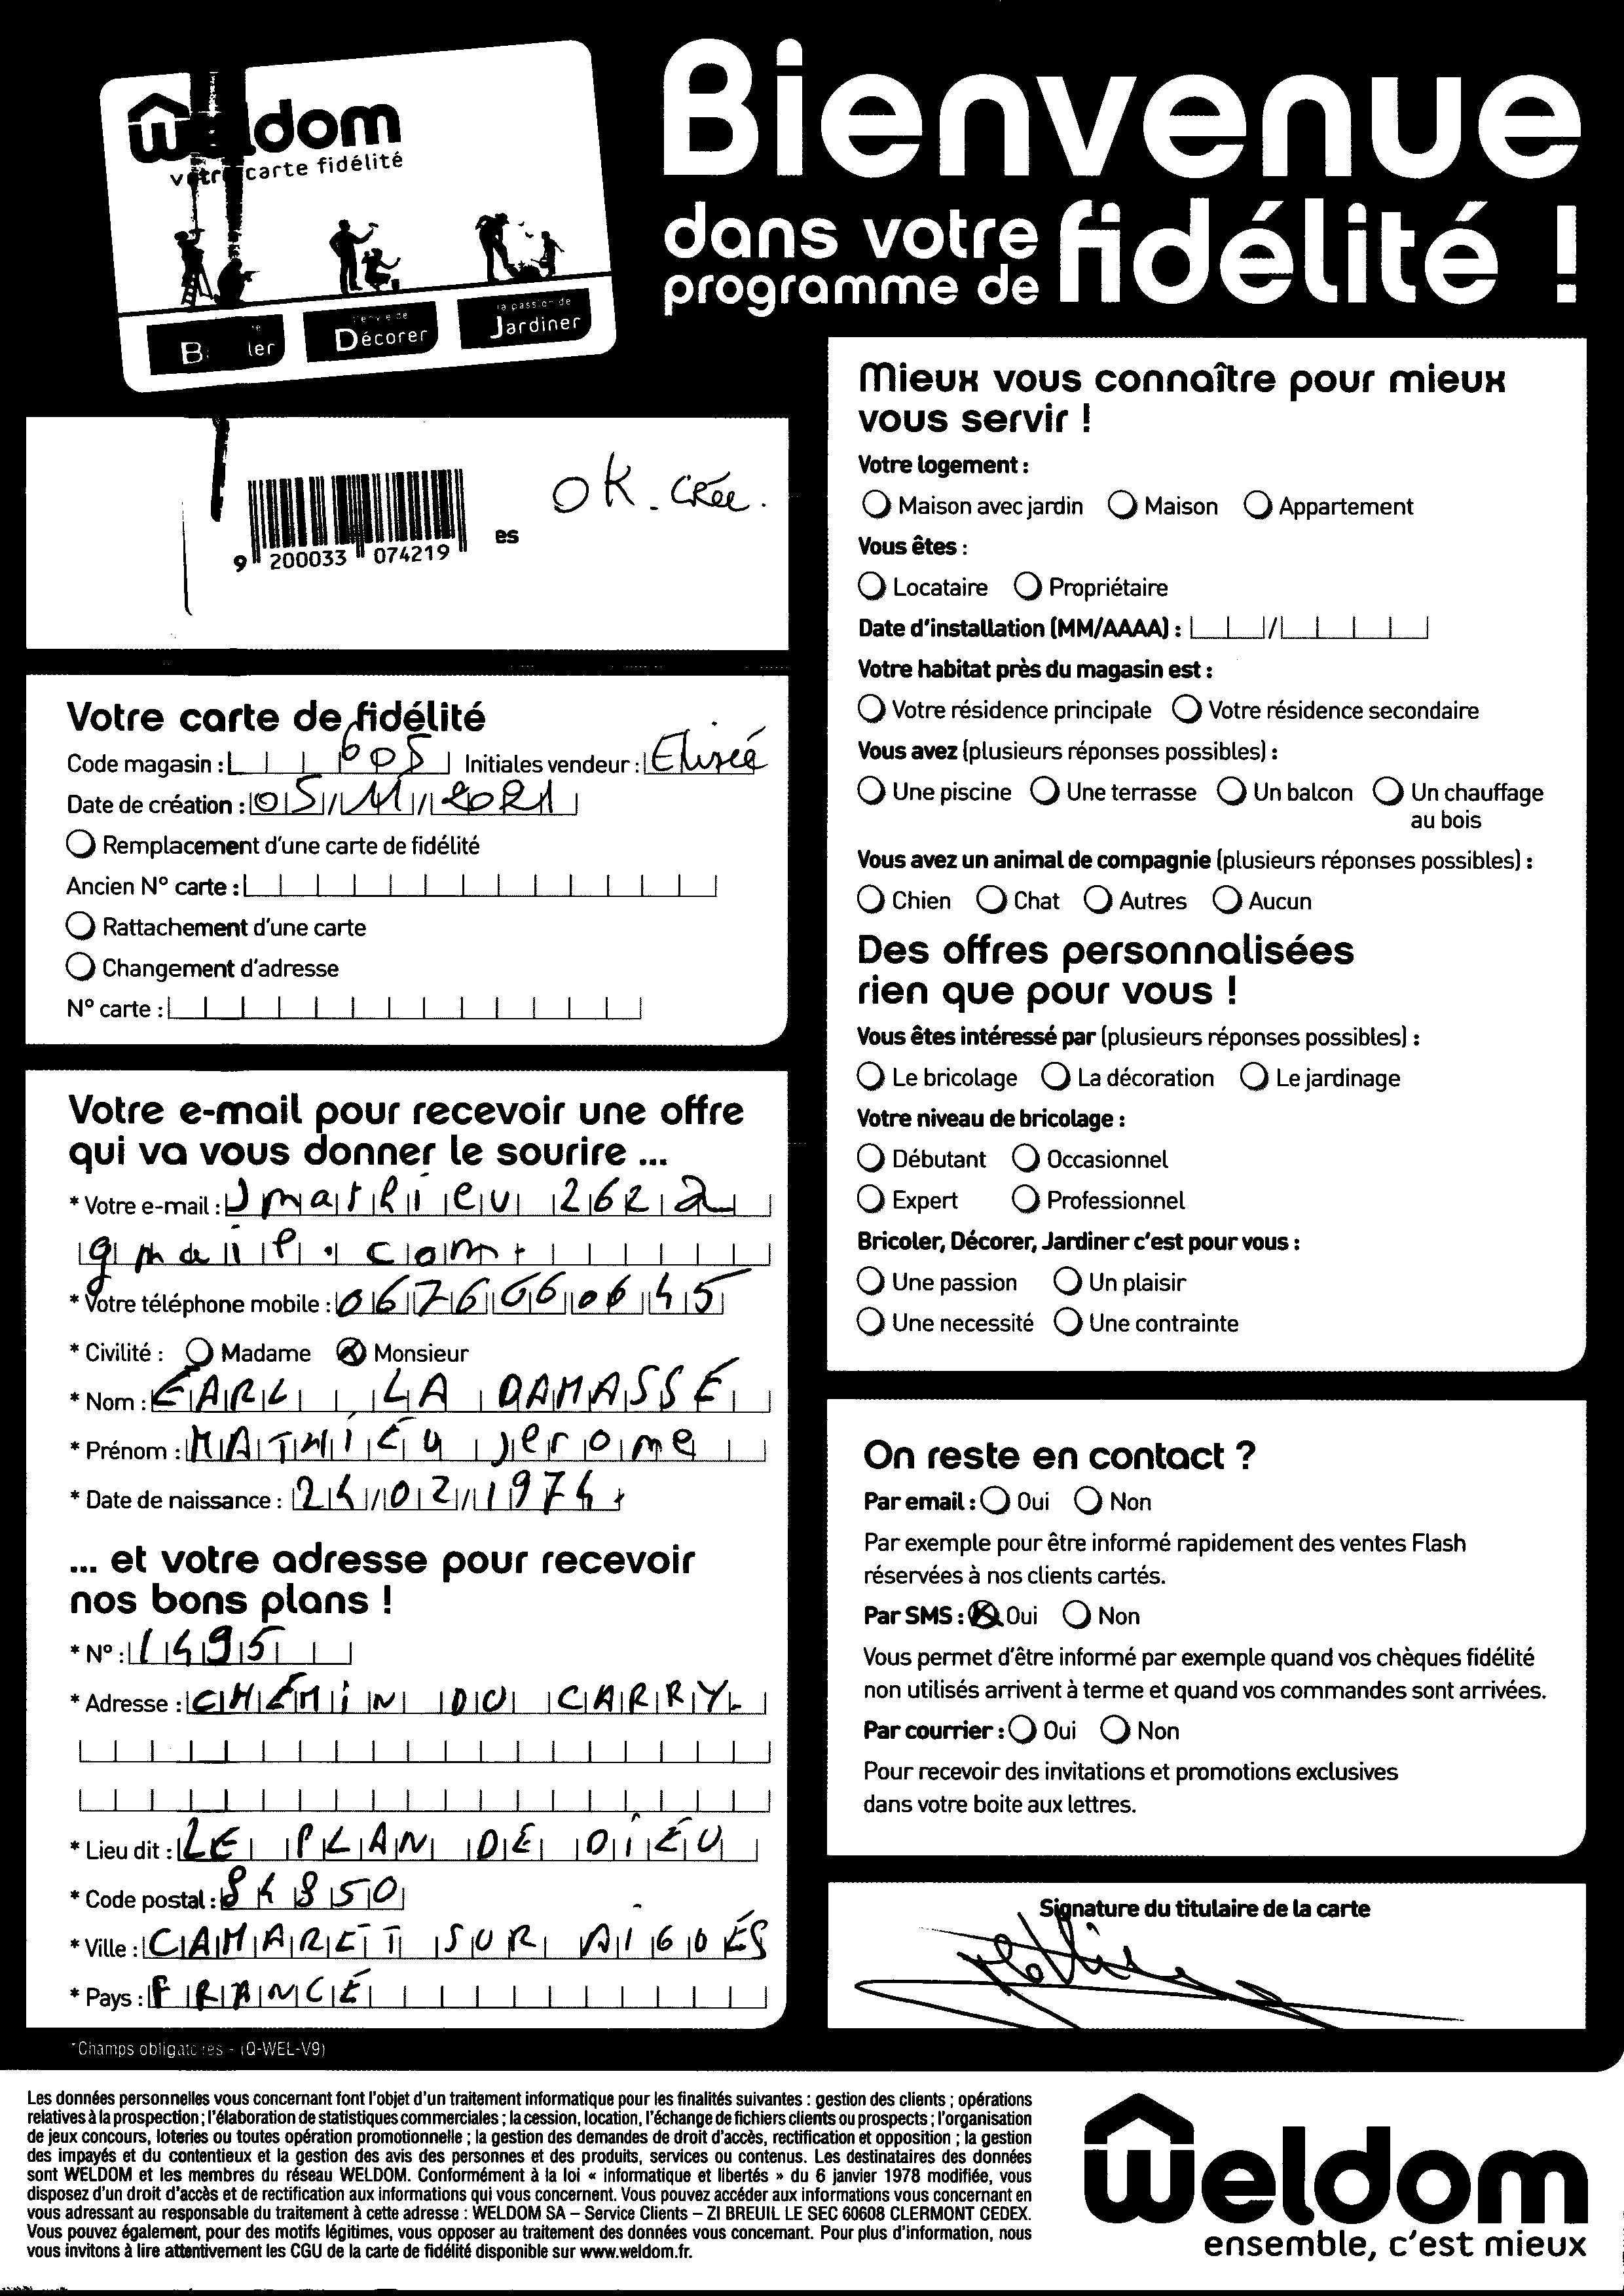 weldom
votre carte fidélité
Décorer
la passion de
Jardiner
Bienvenue
dans votre
programme de fidélité !
OK. Crée.
9 200033 074219
es
Votre carte de fidélité
Code magasin : 605 Initiales vendeur : Elisée
Date de création : 05/11/2021
Remplacement d'une carte de fidélité
Ancien N° carte :
Rattachement d'une carte
Changement d'adresse
N° carte :
Votre e-mail pour recevoir une offre
qui va vous donner le sourire ...
* Votre e-mail :
gmail.com
* Votre téléphone mobile : 0676660645
* Civilité : Madame Monsieur
* Nom : EARL LA DAMASSE
* Prénom : MATHIEU jerome
* Date de naissance : 24/02/1974
... et votre adresse pour recevoir
nos bons plans !
* N° : 1495
* Adresse : CHEMIN DU CARRY
* Lieu dit : LE PLAN DE DIEU
* Code postal : 84850
* Ville : CAMARET SUR AIGUES
* Pays : FRANCE
*Champs obligatoires - (Q-WEL-V9)
Mieux vous connaître pour mieux
vous servir !
Votre logement :
Maison avec jardin Maison Appartement
Vous êtes :
Locataire Propriétaire
Date d'installation (MM/AAAA) : /
Votre habitat près du magasin est :
Votre résidence principale Votre résidence secondaire
Vous avez (plusieurs réponses possibles) :
Une piscine Une terrasse Un balcon Un chauffage
au bois
Vous avez un animal de compagnie (plusieurs réponses possibles) :
Chien Chat Autres Aucun
Des offres personnalisées
rien que pour vous !
Vous êtes intéressé par (plusieurs réponses possibles) :
Le bricolage La décoration Le jardinage
Votre niveau de bricolage :
Débutant Occasionnel
Expert Professionnel
Bricoler, Décorer, Jardiner c'est pour vous :
Une passion Un plaisir
Une necessité Une contrainte
On reste en contact ?
Par email : Oui Non
Par exemple pour être informé rapidement des ventes Flash
réservées à nos clients cartés.
Par SMS : Oui Non
Vous permet d'être informé par exemple quand vos chèques fidélité
non utilisés arrivent à terme et quand vos commandes sont arrivées.
Par courrier : Oui Non
Pour recevoir des invitations et promotions exclusives
dans votre boite aux lettres.
Signature du titulaire de la carte
Les données personnelles vous concernant font l'objet d'un traitement informatique pour les finalités suivantes : gestion des clients ; opérations
relatives à la prospection ; l'élaboration de statistiques commerciales ; la cession, location, l'échange de fichiers clients ou prospects ; l'organisation
de jeux concours, loteries ou toutes opération promotionnelle ; la gestion des demandes de droit d'accès, rectification et opposition ; la gestion
des impayés et du contentieux et la gestion des avis des personnes et des produits, services ou contenus. Les destinataires des données
sont WELDOM et les membres du réseau WELDOM. Conformément à la loi « informatique et libertés » du 6 janvier 1978 modifiée, vous
disposez d'un droit d'accès et de rectification aux informations qui vous concernent. Vous pouvez accéder aux informations vous concernant en
vous adressant au responsable du traitement à cette adresse : WELDOM SA – Service Clients – ZI BREUIL LE SEC 60608 CLERMONT CEDEX.
Vous pouvez également, pour des motifs légitimes, vous opposer au traitement des données vous concernant. Pour plus d'information, nous
vous invitons à lire attentivement les CGU de la carte de fidélité disponible sur www.weldom.fr.
weldom
ensemble, c'est mieux